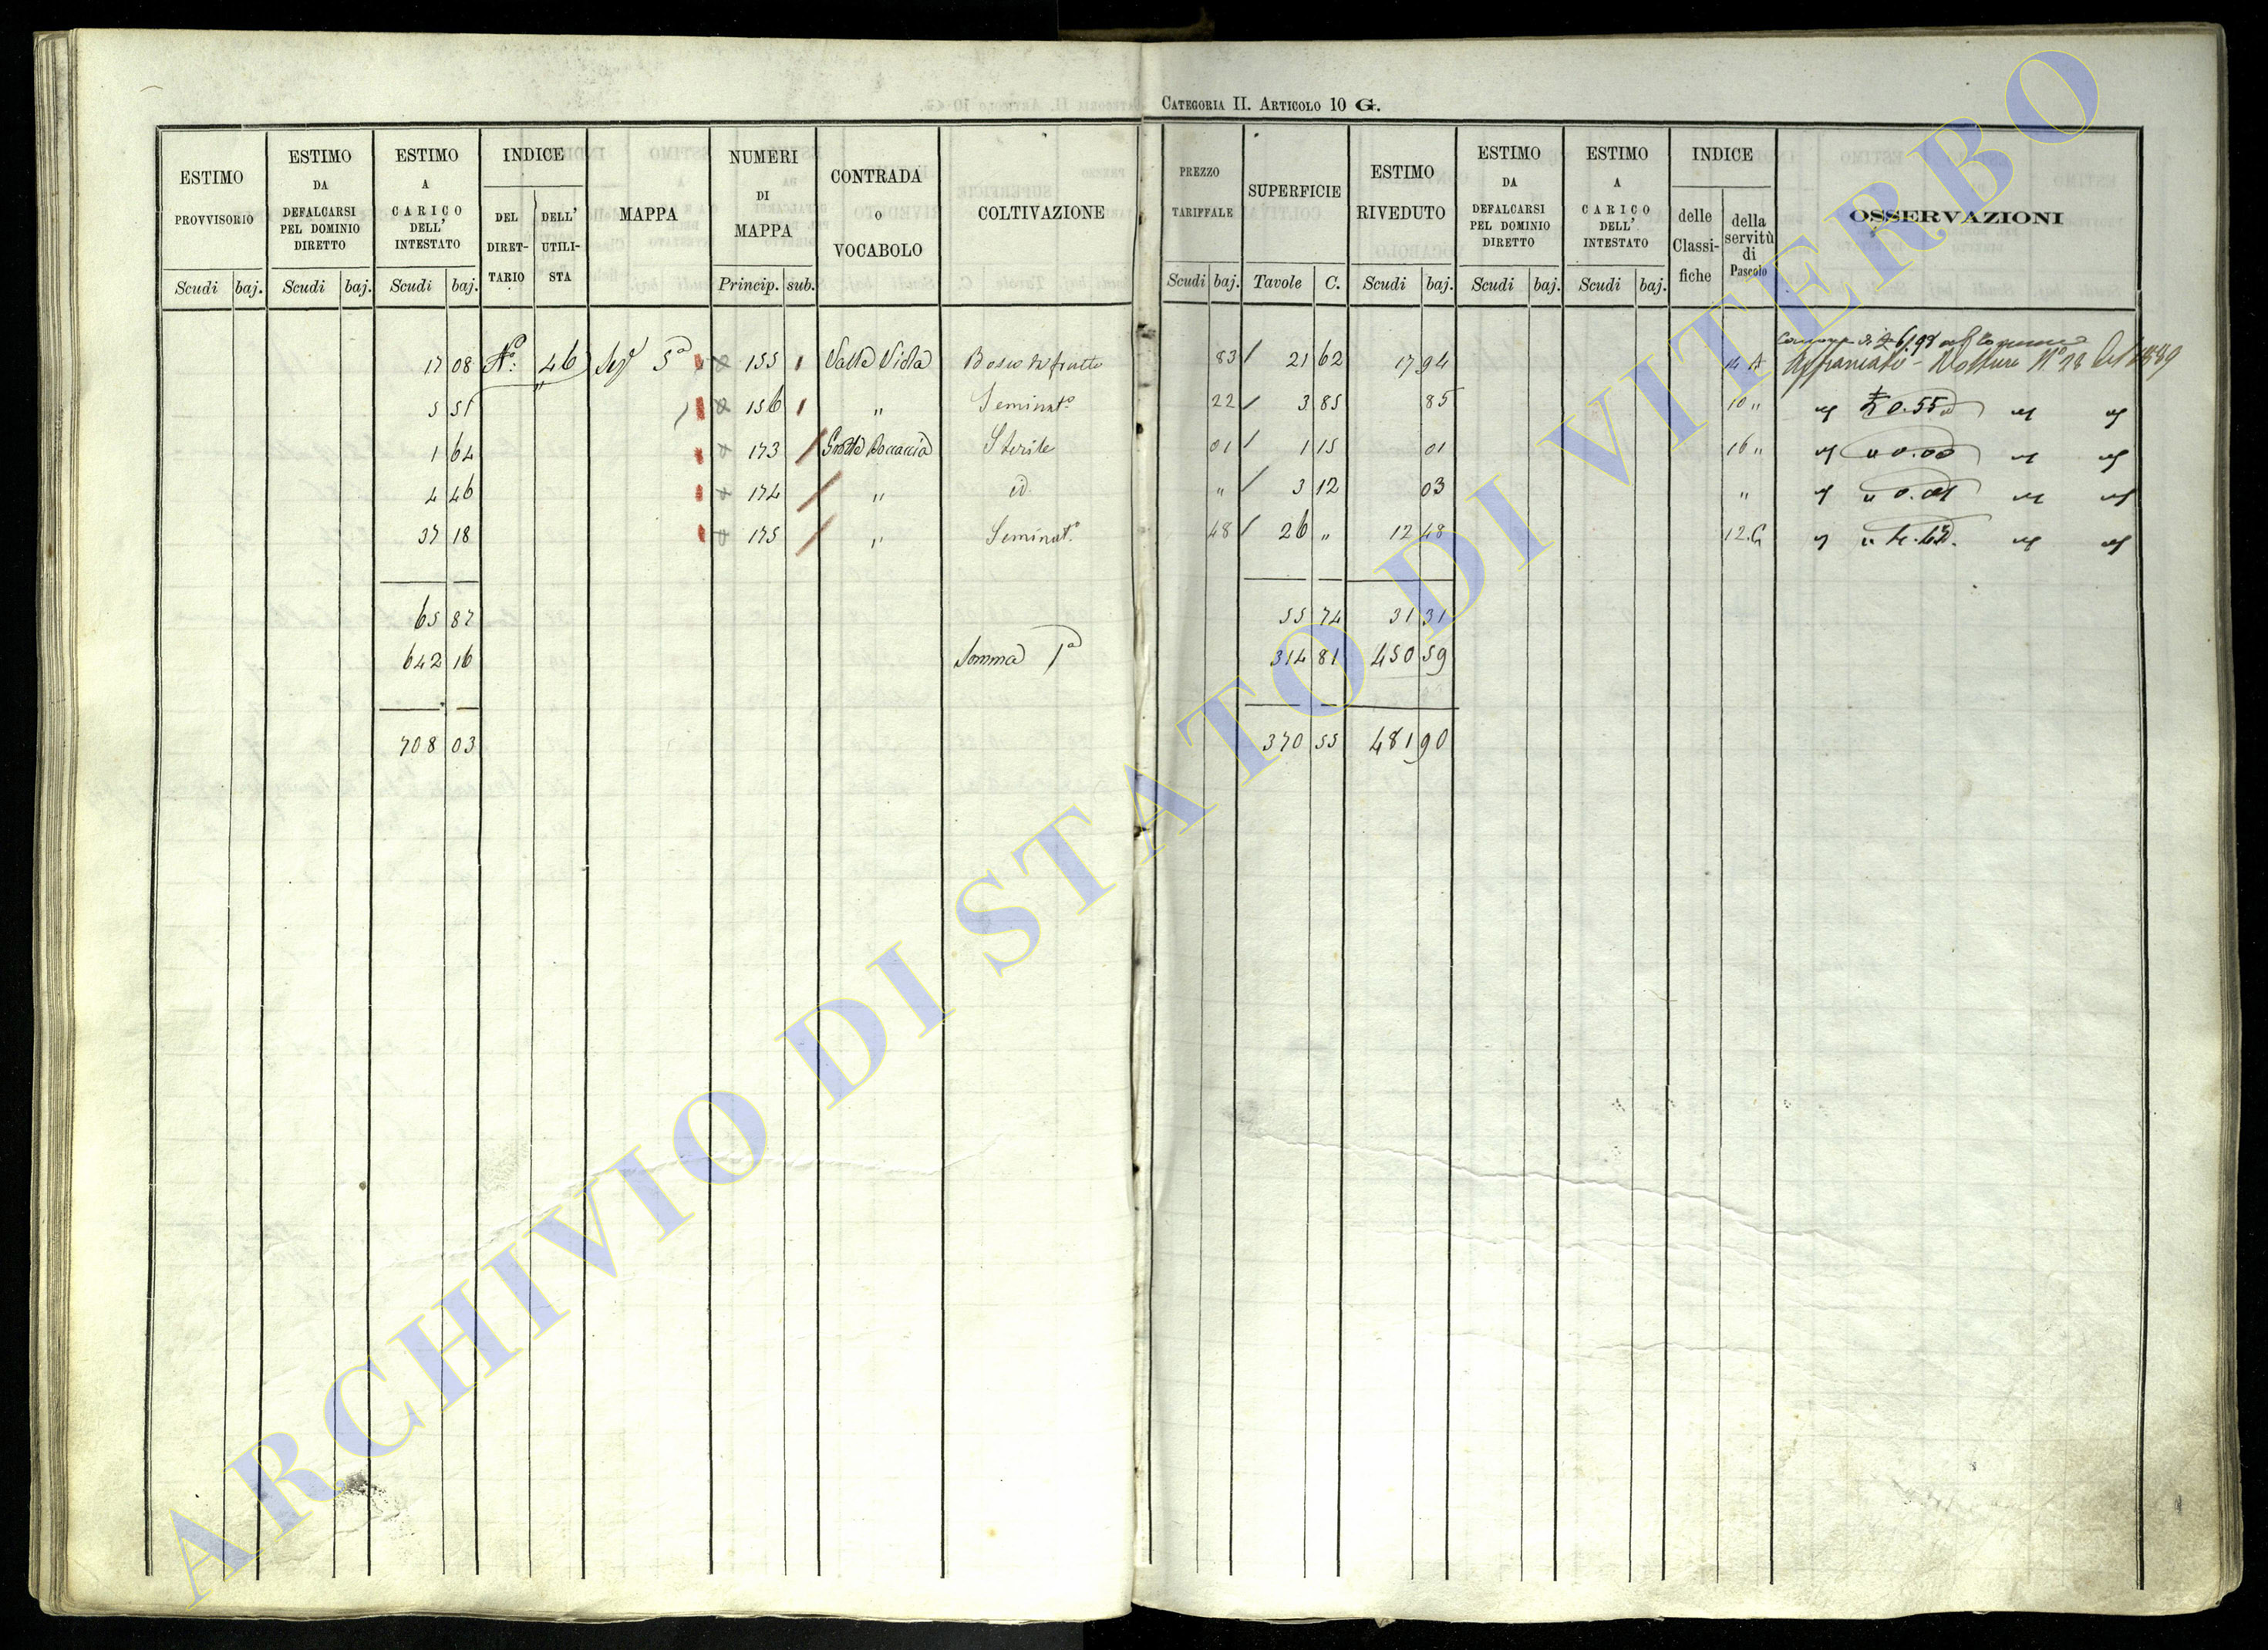 CATEGORIA II. ARTICOLO 10 G.
ESTIMO PROVVISORIO Scudi baj.
ESTIMO DA DEFALCARSI PEL DOMINIO DIRETTO Scudi baj.
ESTIMO A CARICO DELL' INTESTATO Scudi baj.
INDICE DEL DIRET-TARIO DELL' UTILI-STA
MAPPA
NUMERI DI MAPPA Princip. sub.
CONTRADA O VOCABOLO
COLTIVAZIONE
PREZZO TARIFFALE Scudi baj.
SUPERFICIE Tavole C.
ESTIMO RIVEDUTO Scudi baj.
ESTIMO DA DEFALCARSI PEL DOMINIO DIRETTO Scudi baj.
ESTIMO A CARICO DELL' INTESTATO Scudi baj.
INDICE delle Classi-fiche della servitù di Pascolo
OSSERVAZIONI
17 08 N.º 46 5ª 155 Valle Viola Bosco da frutto 83 21 62 17 94 14 A N.º 28 del 1889
5 51 156 " Seminat.º 22 3 85 85 10 " 0.55
1 64 173 Grotta Boccaccia Sterile 01 1 15 01 16 "
4 46 174 " id. " 3 12 03 "
37 18 175 " Seminat.º 48 26 " 12 48 12.G
65 87 55 74 31 31
642 16 Somma 1ª 314 81 450 59
708 03 370 55 481 90
ARCHIVIO DI STATO DI VITERBO